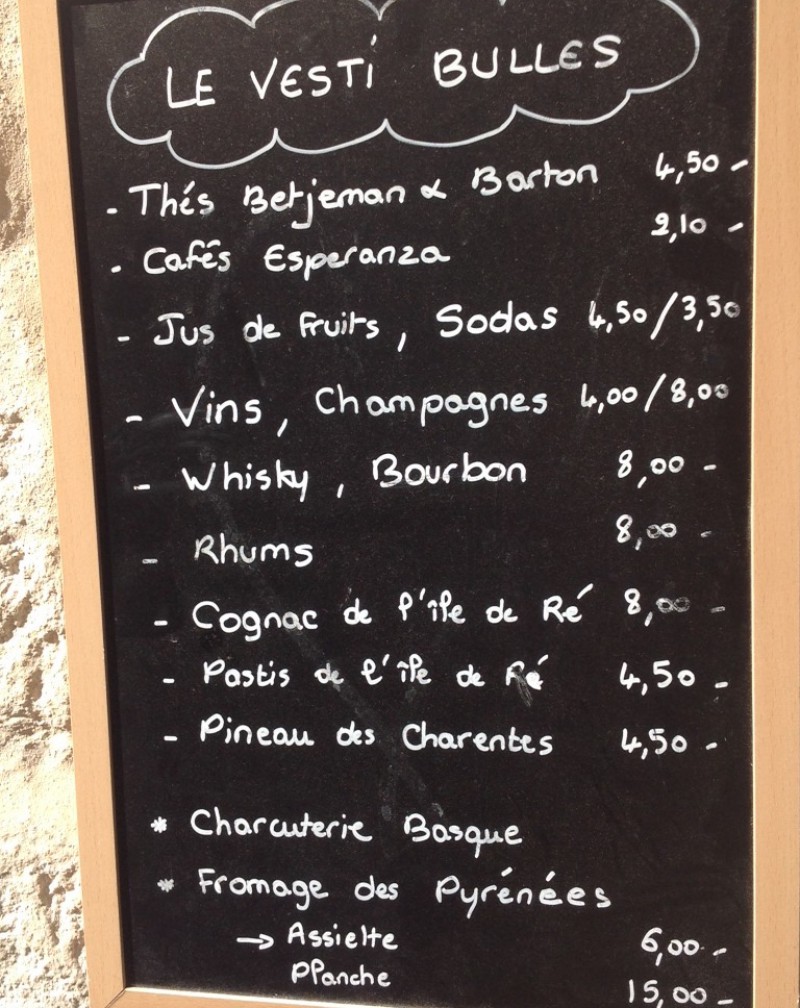 LE VESTI BULLES
- Thés Betjeman & Barton 4,50 -
- Cafés Esperanza 2,10 -
- Jus de fruits, Sodas 4,50/3,50
- Vins, Champagnes 4,00/8,00
- Whisky, Bourbon 8,00 -
- Rhums 8,00 -
- Cognac de l'île de Ré 8,00 -
- Pastis de l'île de Ré 4,50 -
- Pineau des Charentes 4,50 -
* Charcuterie Basque
* Fromage des Pyrénées
→ Assiette 6,00 -
Planche 15,00 -